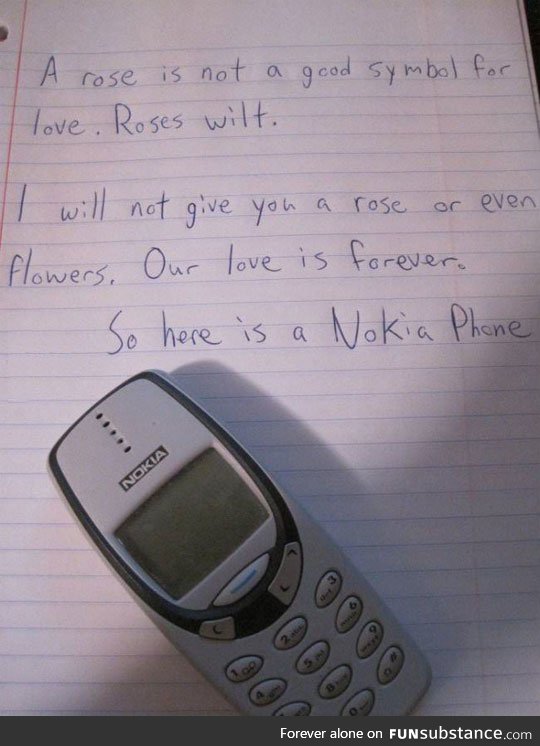 A rose is not a good symbol for
love. Roses wilt.
I will not give you a rose or even
flowers. Our love is forever.
So here is a Nokia Phone
NOKIA
Forever alone on FUNsubstance.com